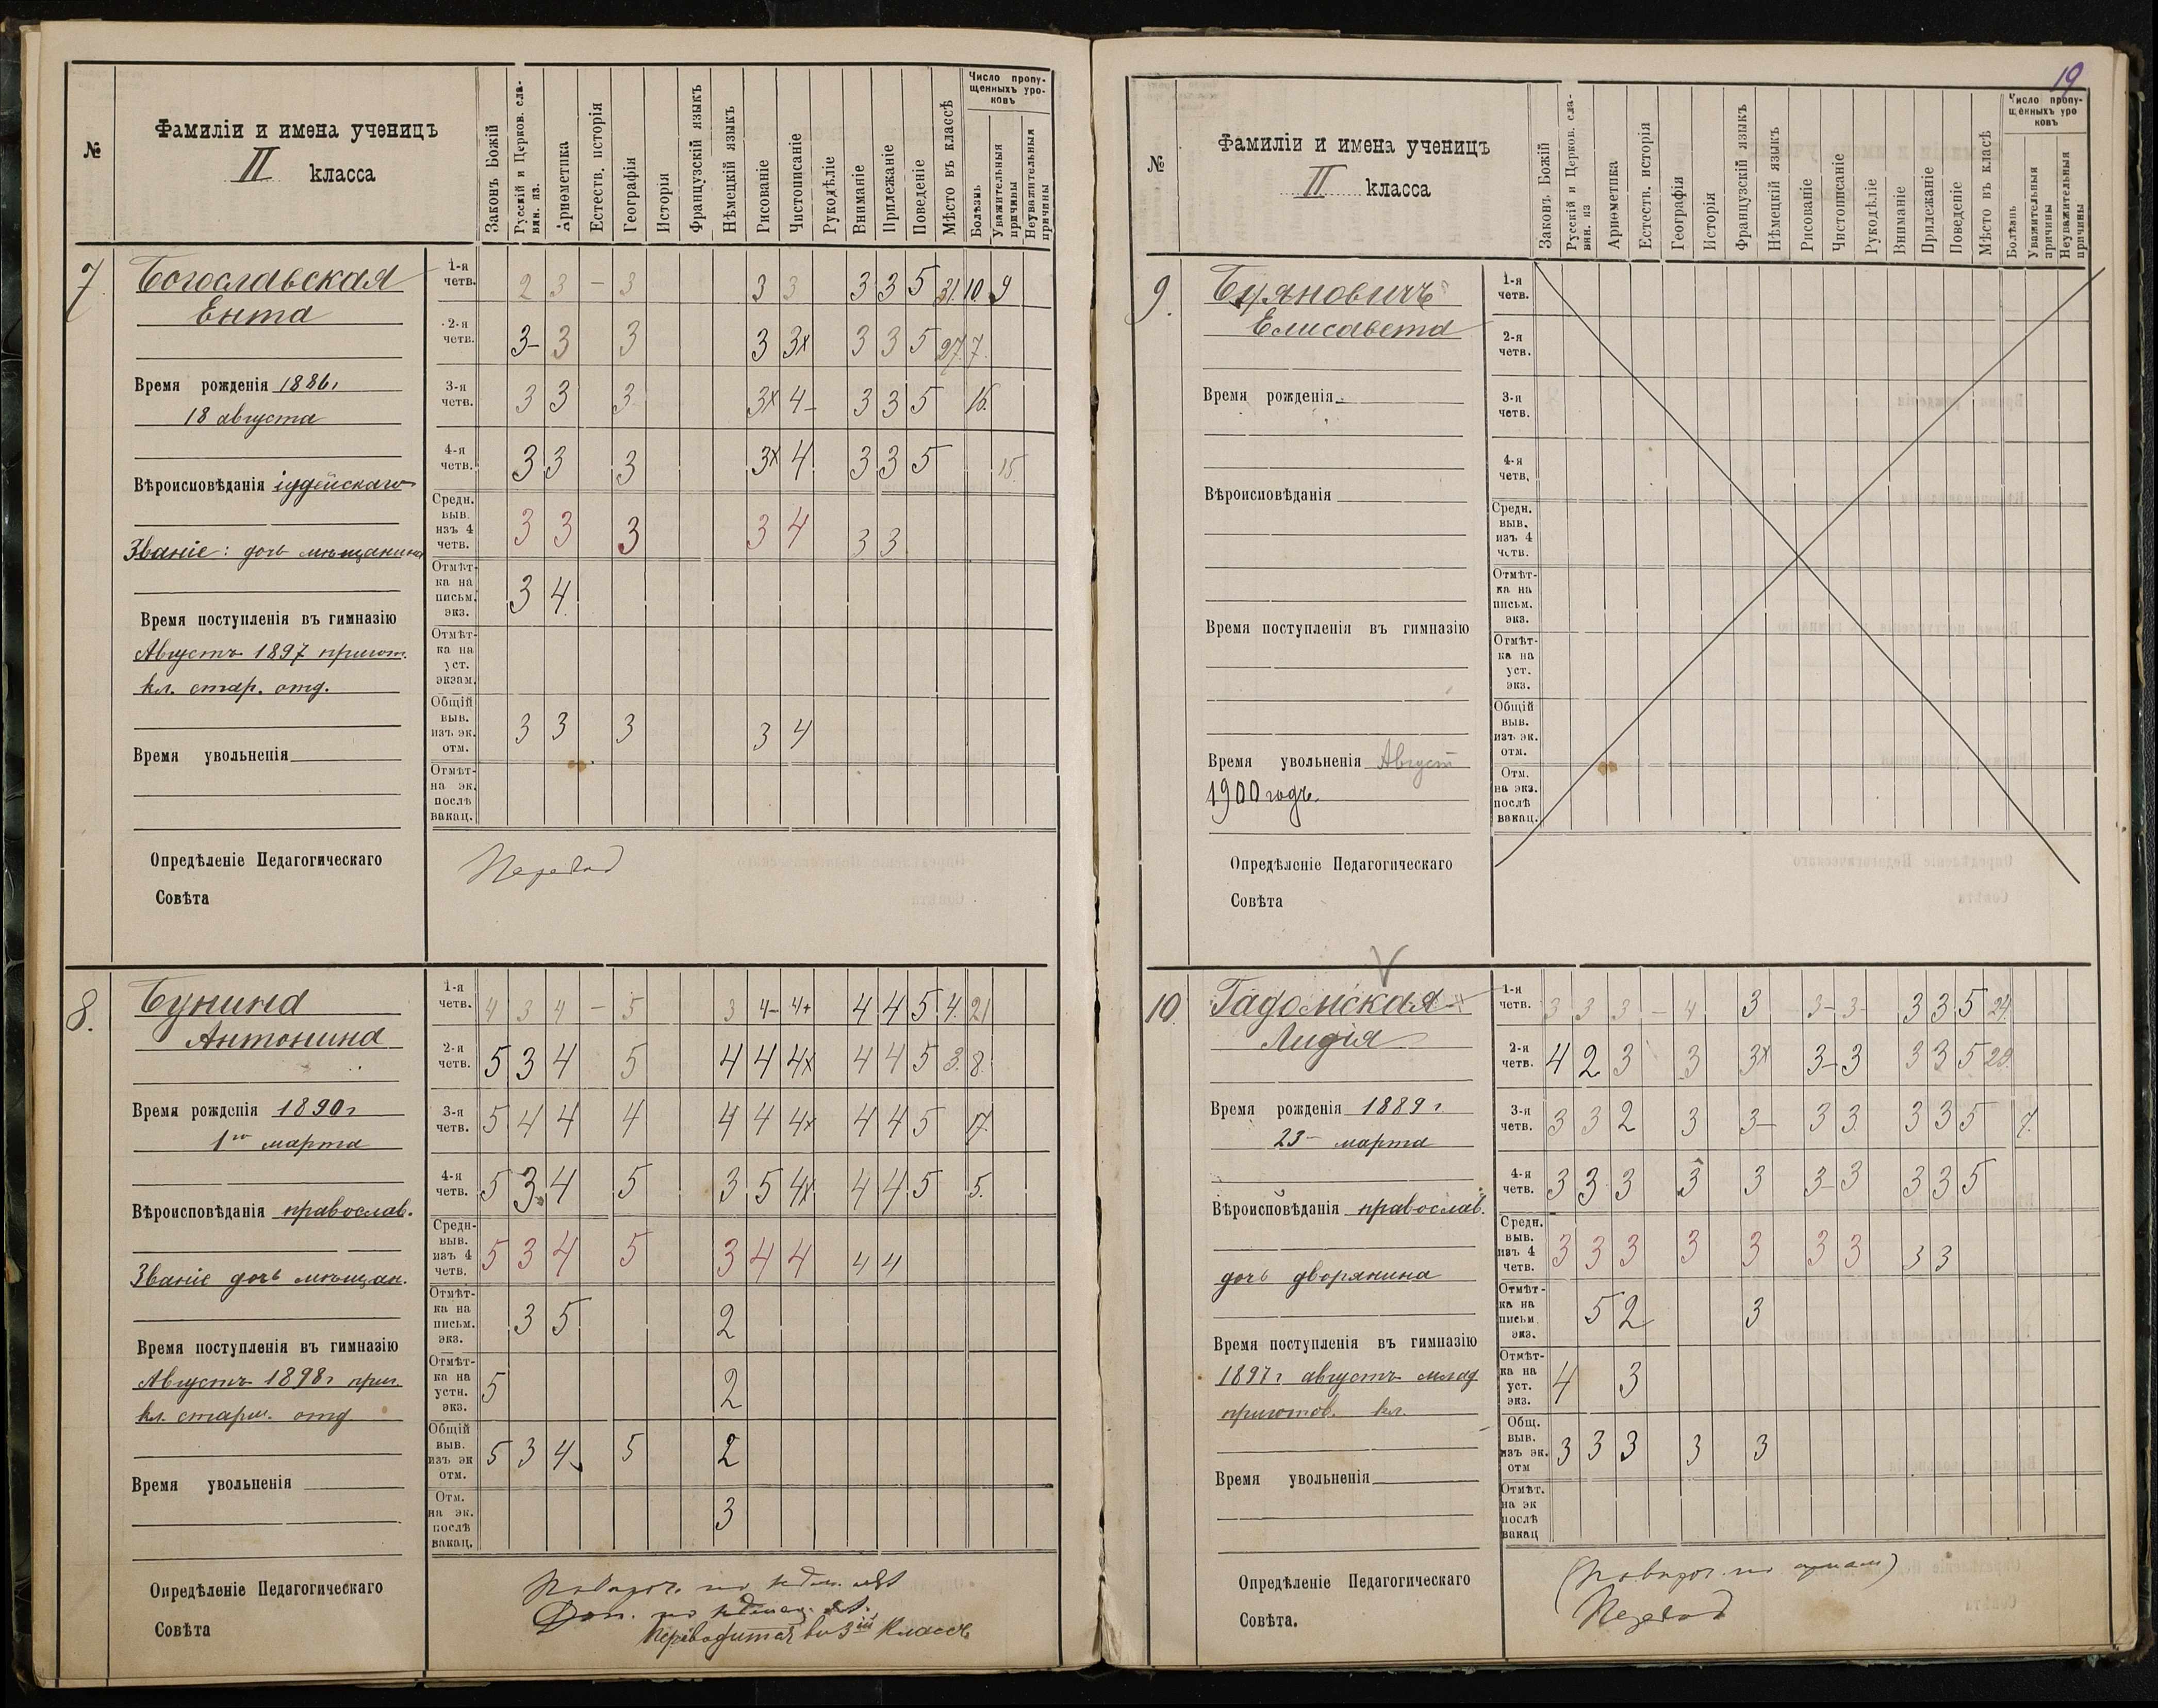 №
Фамиліи и имена ученицъ
II класса
Законъ Божій
Русскій и Церков. сла-
вян. яз.
Ариѳметика
Естеств. исторія
Географія
Исторія
Французскій языкъ
Нѣмецкій языкъ
Рисованіе
Чистописаніе
Рукодѣліе
Вниманіе
Прилежаніе
Поведеніе
Мѣсто въ классѣ
Число пропу-
щенныхъ уро-
ковъ
Болѣзнь
Уважительныя
причины
Неуважительныя
причины
7
Богославская
Ента
Время рожденія 1886г
18 августа
Вѣроисповѣданія іудейскаго
Званіе: дочь мѣщанина
Время поступленія въ гимназію
Августъ 1897 пригот.
кл. стар. отд.
Время увольненія
1-я четв. 2 3 — 3 3 3 3 3 5 31. 10. 9
2-я четв. 3- 3 3 3 3х 3 3 5 27. 7.
3-я четв. 3 3 3 3х 4- 3 3 5 16.
4-я четв. 3 3 3 3х 4 3 3 5 15.
Средн. выв. изъ 4 четв. 3 3 3 3 4 3 3
Отмѣт- ка на письм. экз. 3 4
Отмѣт- ка на уст. экзам.
Общій выв. изъ эк. отм. 3 3 3 3 4
Отмѣт- на эк. послѣ вакац.
Опредѣленіе Педагогическаго
Совѣта
Перевод
8.
Бунина
Антонина
Время рожденія 1890г
1го марта
Вѣроисповѣданія православ.
Званіе дочь мѣщан.
Время поступленія въ гимназію
Августъ 1898г приг.
кл. старш. отд
Время увольненія
1-я четв. 4 3 4 — 5 3 4- 4+ 4 4 5 4. 21
2-я четв. 5 3 4 5 4 4 4х 4 4 5 3. 8.
3-я четв. 5 4 4 4 4 4 4х 4 4 5 17.
4-я четв. 5 3 4 5 3 5 4х 4 4 5 5.
Средн- выв. изъ 4 четв. 5 3 4 5 3 4 4 4 4
Отмѣт- ка на письм. экз. 3 5 2
Отмѣт- ка на устн. экз. 5 2
Общій выв. изъ эк отм. 5 3 4 5 2
Отм. на эк. послѣ вакац. 3
Опредѣленіе Педагогическаго
Совѣта
Переводится въ 3ій классъ
19
№
Фамиліи и имена ученицъ
II класса
Законъ Божій
Русскій и Церков. сла-
вян. яз
Ариѳметика
Естеств. исторія
Географія
Исторія
Французскій языкъ
Нѣмецкій языкъ
Рисованіе
Чистописаніе
Рукодѣліе
Вниманіе
Прилежаніе
Поведеніе
Мѣсто въ класѣ
Число пропу-
щенныхъ уро
ковъ
Болѣзнь
Уважительныя
причины
Неуважительныя
причины
9.
Буяновичъ
Елисавета
Время рожденія
Вѣроисповѣданія
Время поступленія въ гимназію
Время увольненія Август
1900 годъ.
1-я четв.
2-я четв.
3-я четв.
4-я четв.
Средн. выв. изъ 4 четв.
Отмѣт- ка на письм. экз.
Отмѣт- ка на уст. экз.
Общій выв. изъ эк. отм.
Отм. на экз. послѣ вакац.
Опредѣленіе Педагогическаго
Совѣта
10.
Гадомская
Лидія
Время рожденія 1889г.
23 марта
Вѣроисповѣданія православ.
дочь дворянина
Время поступленія въ гимназію
1897г августъ млад
приготов. кл.
Время увольненія
1-я четв. 3 3 3 — 4 3 3- 3- 3 3 5 24.
2-я четв. 4 2 3 3 3х 3- 3 3 3 5 23.
3-я четв. 3 3 2 3 3- 3 3 3 3 5 7.
4-я четв. 3 3 3 3 3 3- 3 3 3 5
Средн. выв. изъ 4 четв. 3 3 3 3 3 3 3 3 3
Отмѣт- ка на письм. экз. 5 2 3
Отмѣт- ка на уст. экз. 4 3
Общ. выв. изъ эк. отм 3 3 3 3 3
Отмѣт. на эк послѣ вакац
Опредѣленіе Педагогическаго
Совѣта.
Перевод